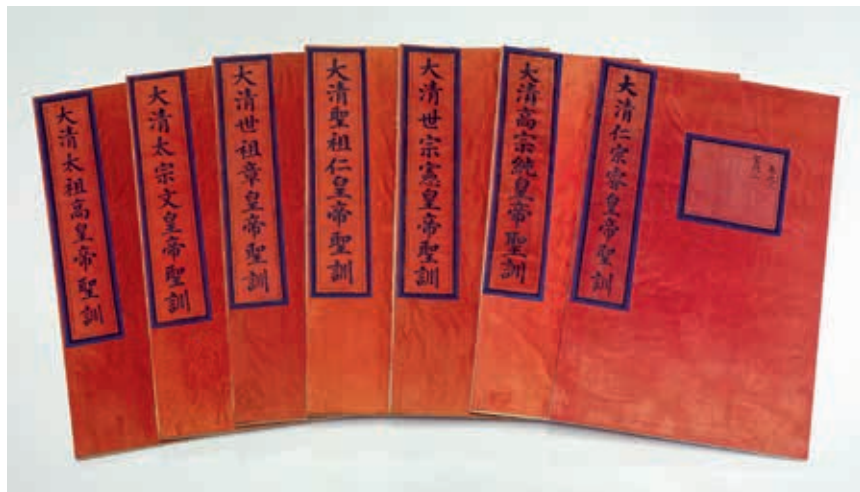 大清太祖高皇帝聖訓
大清太宗文皇帝聖訓
大清世祖章皇帝聖訓
大清聖祖仁皇帝聖訓
大清世宗憲皇帝聖訓
大清高宗純皇帝聖訓
大清仁宗睿皇帝聖訓